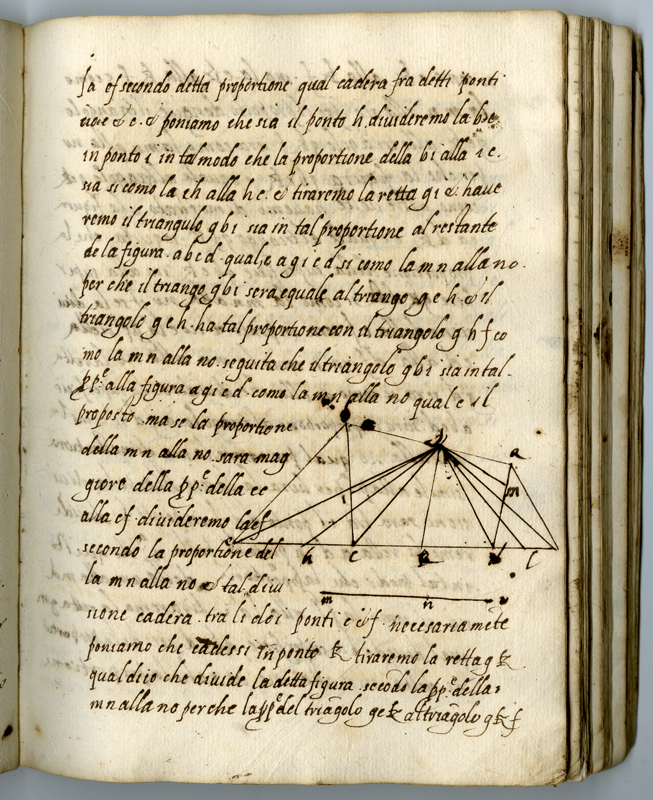 la ef secondo detta proportione qual cadera fra detti ponti
e c. & poniamo che sia il ponto h. divideremo la b e
in ponto i in tal modo che la proportione della b i alla i e.
sia si como la e h alla h c. & tiraremo la retta g i & have
remo il triangulo g b i sia in tal proportione al restante
de la figura. a b c d. qual e a g i c d si como la m n alla n o.
per che il triango g b i sera equale al triango g e h & il
triangolo g e h. ha tal proportione con il triangolo g h f co
mo la m n alla no. seguita che il triangolo g b i sia in tal.
ppe. alla figura a g i c d. como la m n alla no qual e il
proposto. ma se la proportione
della m n alla no. sara mag
giore della ppe della ec
alla ef. divideremo la ef
secondo la proportione del
la m n alla no & tal divi
sione cadera. tra li doi ponti e & f. necesariamēte
poniamo che cadessi in ponto k tiraremo la retta g k
qual dijo che divide la detta figura. secōdo la ppe. della
m n alla no per che la ppe del triāgolo g e k al triāgolo g k f
g
a
i
m
h
c
k
l
m n o